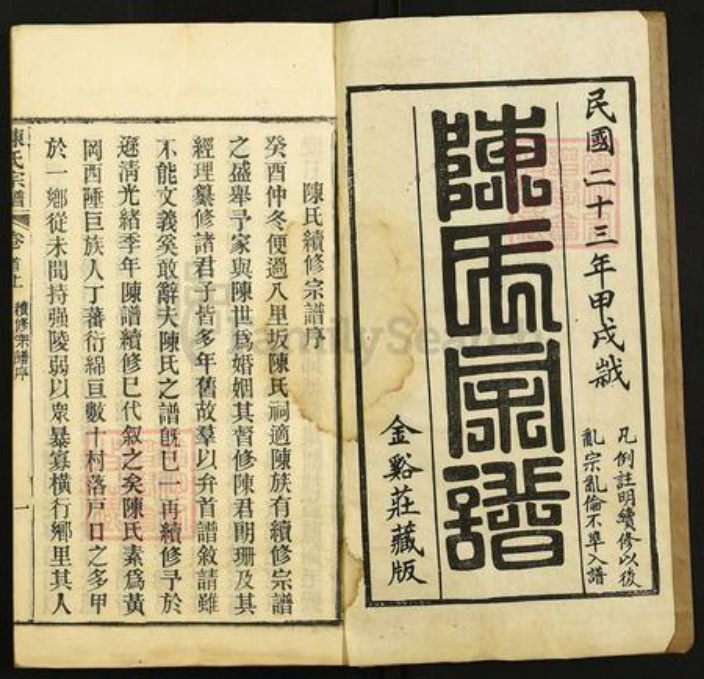 民國二十三年甲戌歲
陳氏宗譜
凡例註明續修以後
亂宗亂倫不準入譜
金谿莊藏版
陳氏續修宗譜序
癸酉仲冬便過八里坂陳氏祠適陳族有續修宗譜
之盛舉予家與陳世爲婚姻其督修陳君朗珊及其
經理纂修諸君子皆多年舊故羣以弁首譜敘請雖
不能文義奚敢辭夫陳氏之譜旣已一再續修予於
遜清光緒季年陳譜續修巳代叙之矣陳氏素爲黃
岡西陲巨族人丁蕃衍綿亘數十村落戸口之多甲
於一鄉從未聞持强陵弱以衆暴寡橫行鄉里其人
陳氏宗譜
卷首上
續修宗譜序
一
FamilySearch